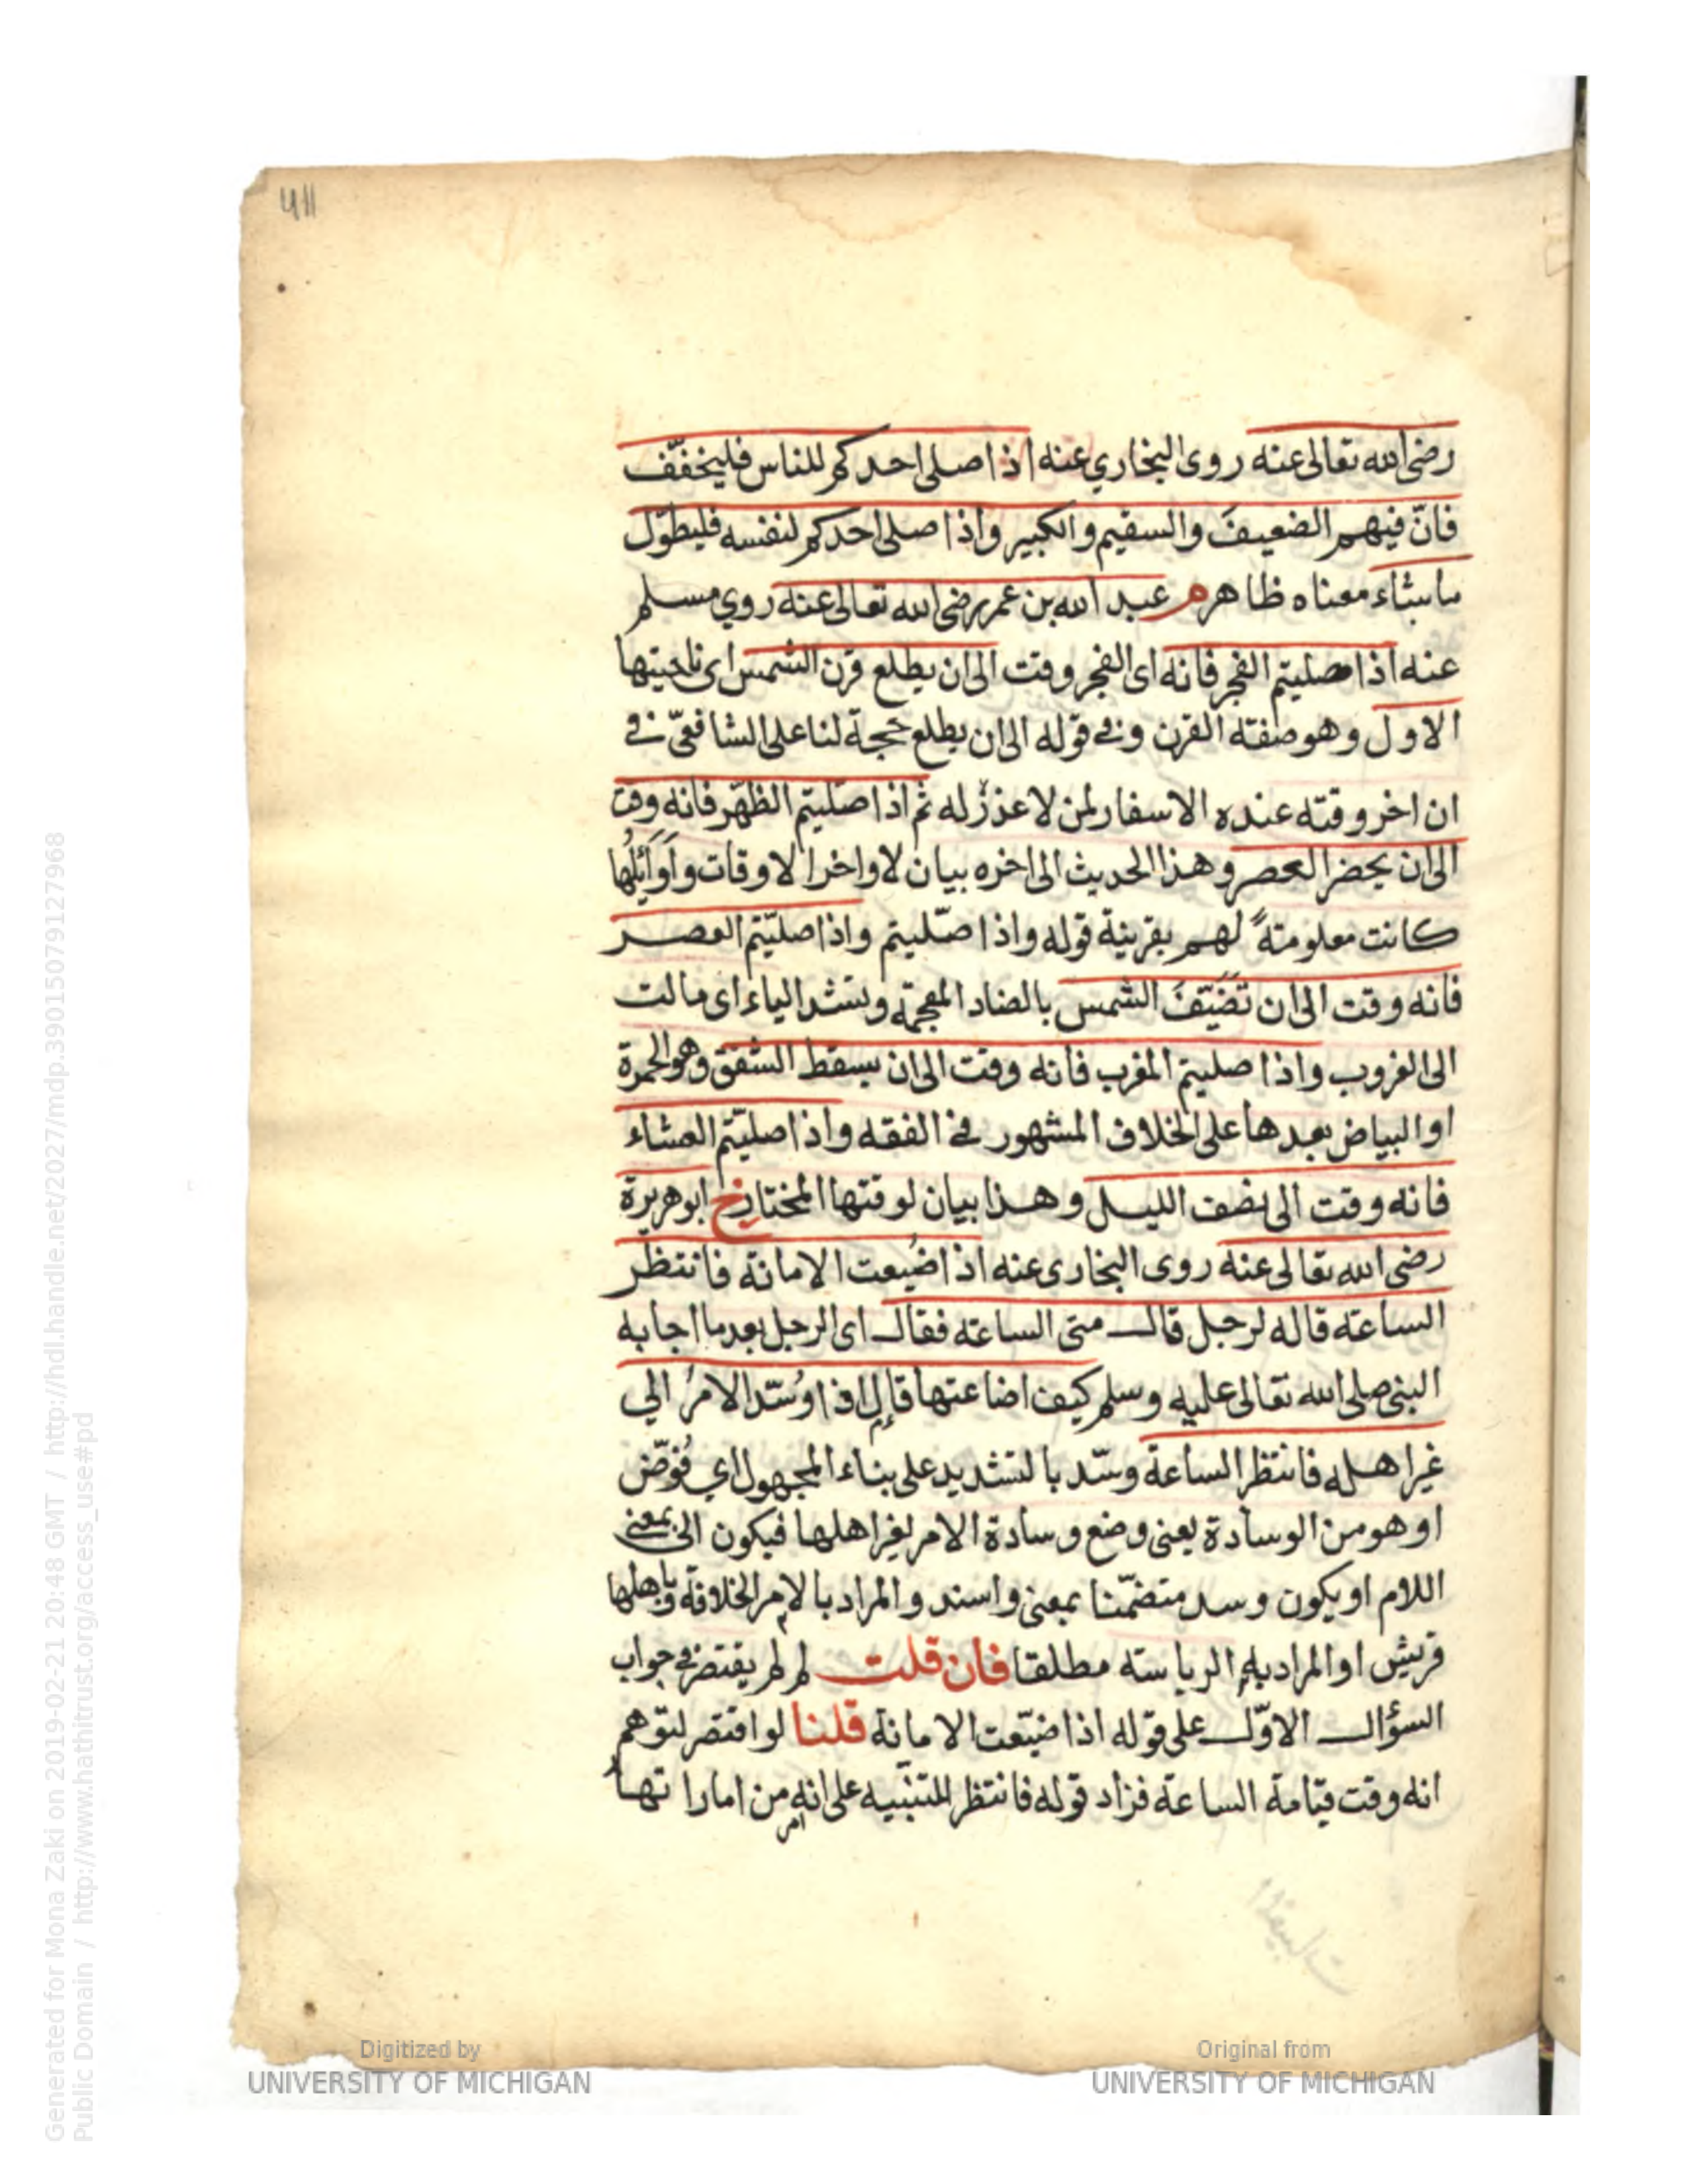 411
رضي الله تعالى عنه روى البخاري عنه اذا صلى احدكم للناس فليخفّف
فانّ فيهم الضعيفَ والسقيم والكبير واذا صلى احدكم لنفسه فليطوّل
ماشاء معناه ظاهر م عبد الله بن عمر رضي الله تعالى عنه روي مسلم
عنه اذا صليتم الفجر فانه اى الفجر وقت الى ان يطلع قرن الشمس اى ناحيتها
الاول وهو صفته القرن وفي قوله الى ان يطلع حجة لنا على الشافعيّ في
ان اخر وقته عنده الاسفار لمن لا عذر له ثم اذا صلّيتم الظهر فانه وقت
الى ان يحضر العصر وهذا الحديث الى اخره بيان لاواخر الاوقات واَوَائِلُها
كانت معلومتةً لهم بقرينة قوله واذا صلّيتم واذا صليّتم العصر
فانه وقت الى ان تَضَيّفَ الشمس بالضاد المعجمة وتشد الياء اى مالت
الى الغروب واذا صليتم المغرب فانه وقت الى ان يسقط الشفق وهو الحمرة
او البياض بعدها على الخلاف المشهور في الفقه واذا صليتم العشاء
فانه وقت الى نصف الليل وهذا بيان لوقتها المختار خ ابو هريرة
رضي الله تعالى عنه روى البخارى عنه اذا ضُيعت الامانة فانتظر
الساعته قاله لرجل قال متى الساعته فقال اى الرجل بعد ما اجابه
النبي صلى الله تعالى عليه وسلم كيف اضاعتها قال اذا وُسّد الامرُ الي
غير اهله فانتظر الساعة وسّد بالتشديد على بناء المجهول اي فُوّض
او هو من الوسادة يعنى وضع وسادة الامر لغير اهلها فيكون الى بمعنى
اللام او يكون وسد متضمّنا بمعنى واسند والمراد بالامر الخلافة وباهلها
قريش او المراد به الرياسته مطلقا فان قلت لم لم يقتصر في جواب
السؤال الاوّل على قوله اذا ضيّعت الامانة قلنا لو اقتصر لتوهم
انه وقت قيامة الساعة فزاد قوله فانتظر للتنبيه على انه من اماراتها
امر
Digitized by
UNIVERSITY OF MICHIGAN
Original from
UNIVERSITY OF MICHIGAN
Generated for Mona Zaki on 2019-02-21 20:48 GMT / http://hdl.handle.net/2027/mdp.39015079127968
Public Domain / http://www.hathitrust.org/access_use#pd